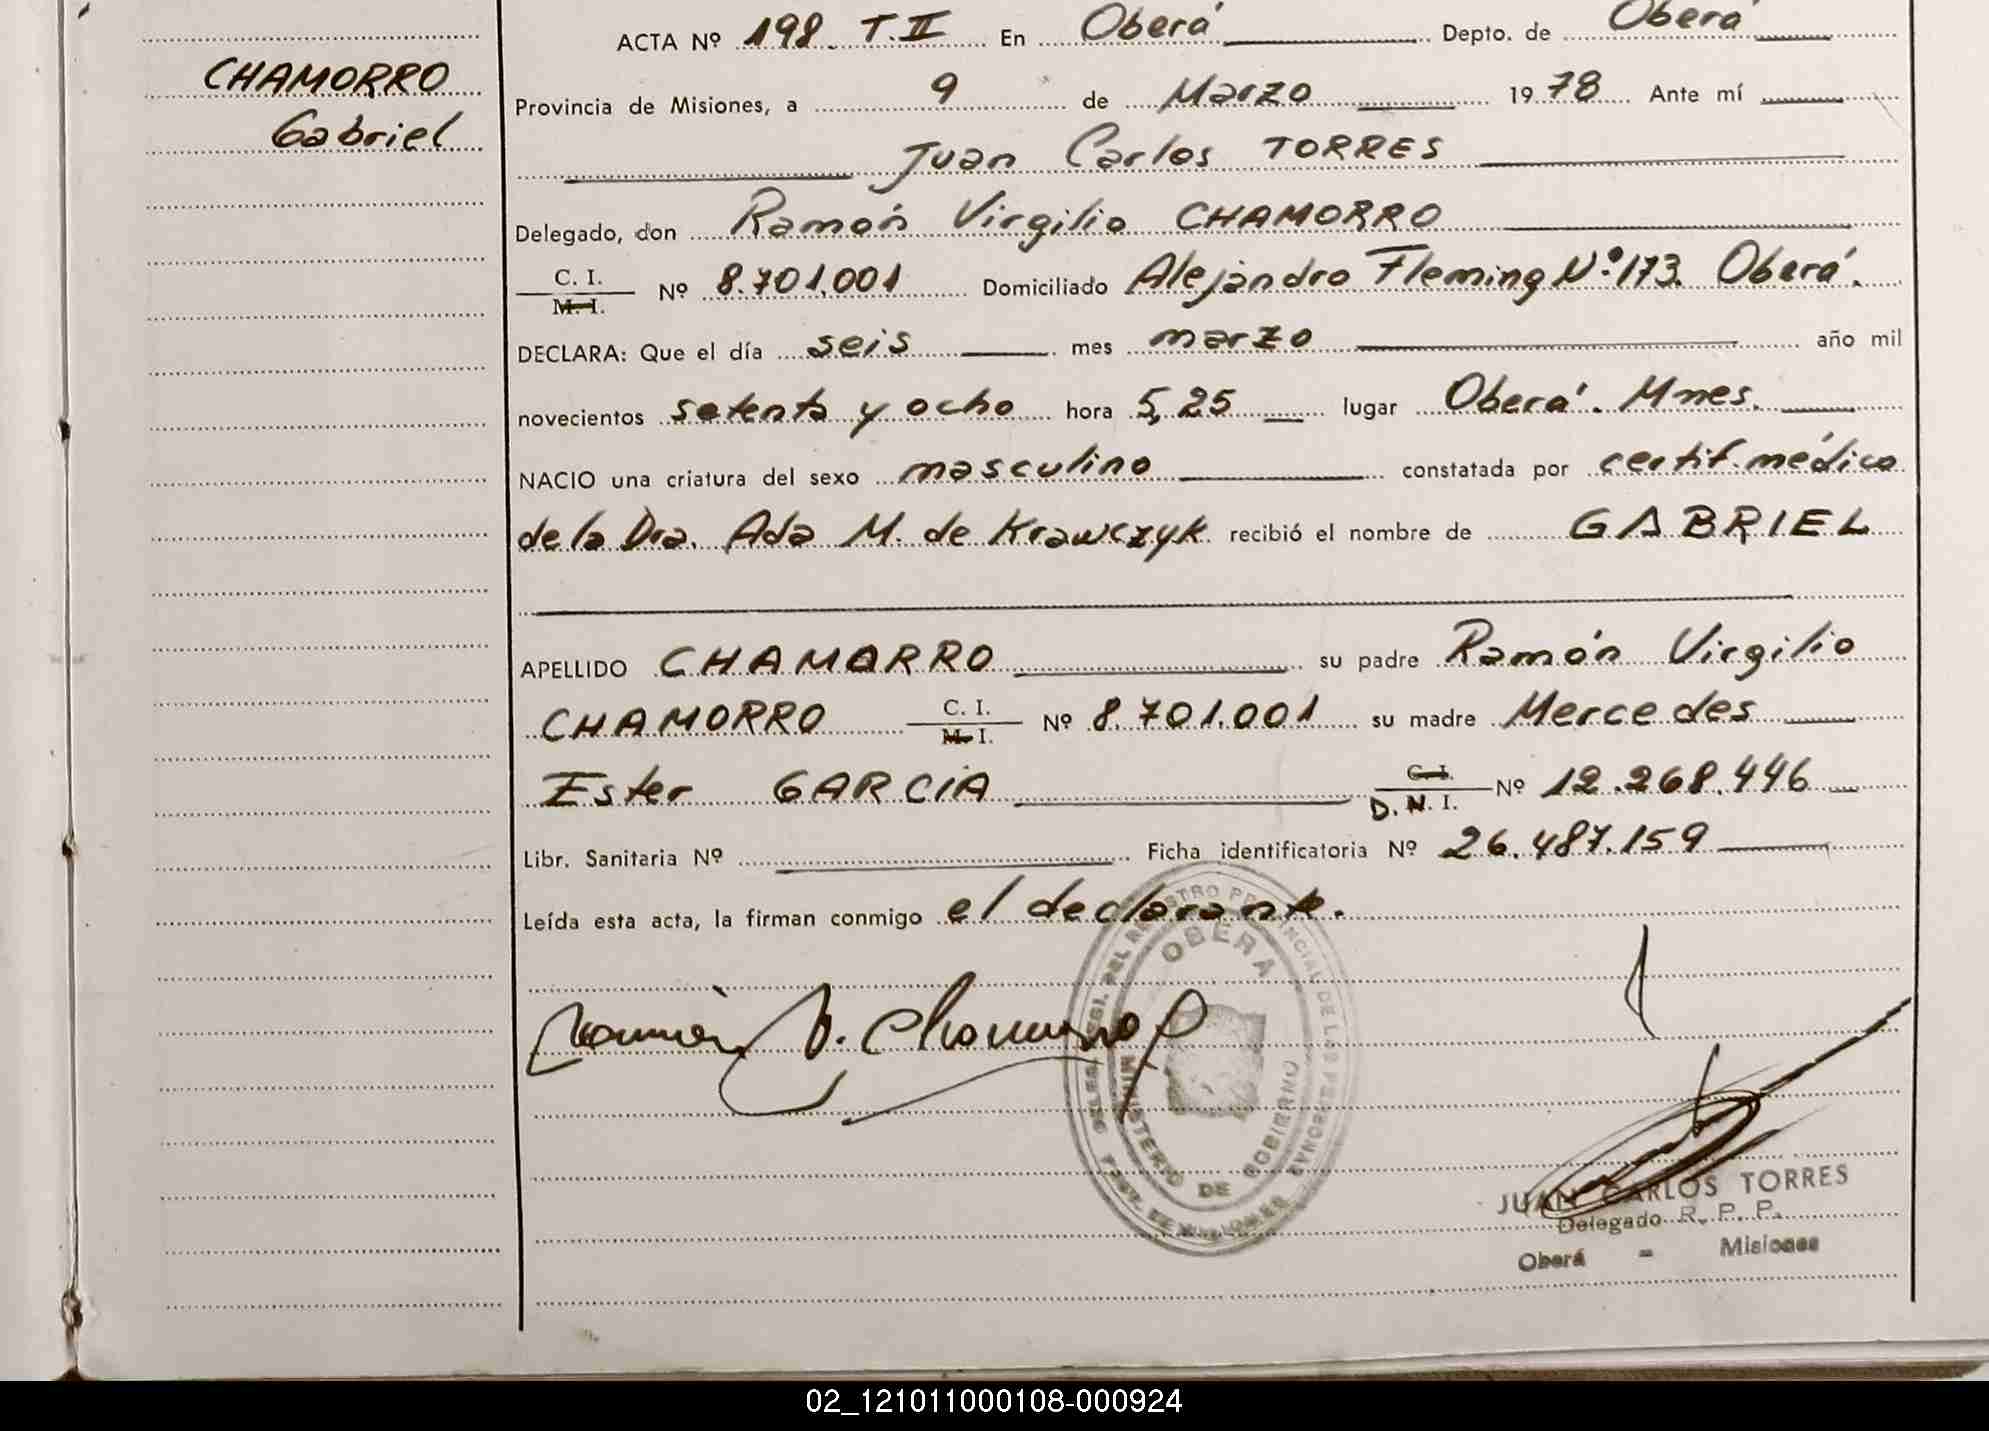 ACTA Nº 198 T.II En Oberá Depto. de Oberá
CHAMORRO
Gabriel
Provincia de Misiones, a 9 de Marzo 1978 Ante mí
Juan Carlos TORRES
Delegado, don Ramón Virgilio CHAMORRO
C. I.
M. I. Nº 8.701.001 Domiciliado Alejandro Fleming Nº 173. Oberá.
DECLARA: Que el día seis mes marzo año mil
novecientos setenta y ocho hora 5,25 lugar Oberá. Mnes.
NACIO una criatura del sexo masculino constatada por certif. médico
de la Dra. Ada M. de Krawczyk recibió el nombre de GABRIEL
APELLIDO CHAMORRO su padre Ramón Virgilio
CHAMORRO C. I.
M. I. Nº 8.701.001 su madre Mercedes
Ester GARCIA C. I.
D. N. I. Nº 12.268.446
Libr. Sanitaria Nº Ficha identificatoria Nº 26.487.159
Leída esta acta, la firman conmigo el declarante.
OBERÁ
Ramón V. Chamorro
MINISTERIO DE GOBIERNO
JUAN CARLOS TORRES
Delegado R. P. P.
Oberá - Misiones
02_121011000108-000924